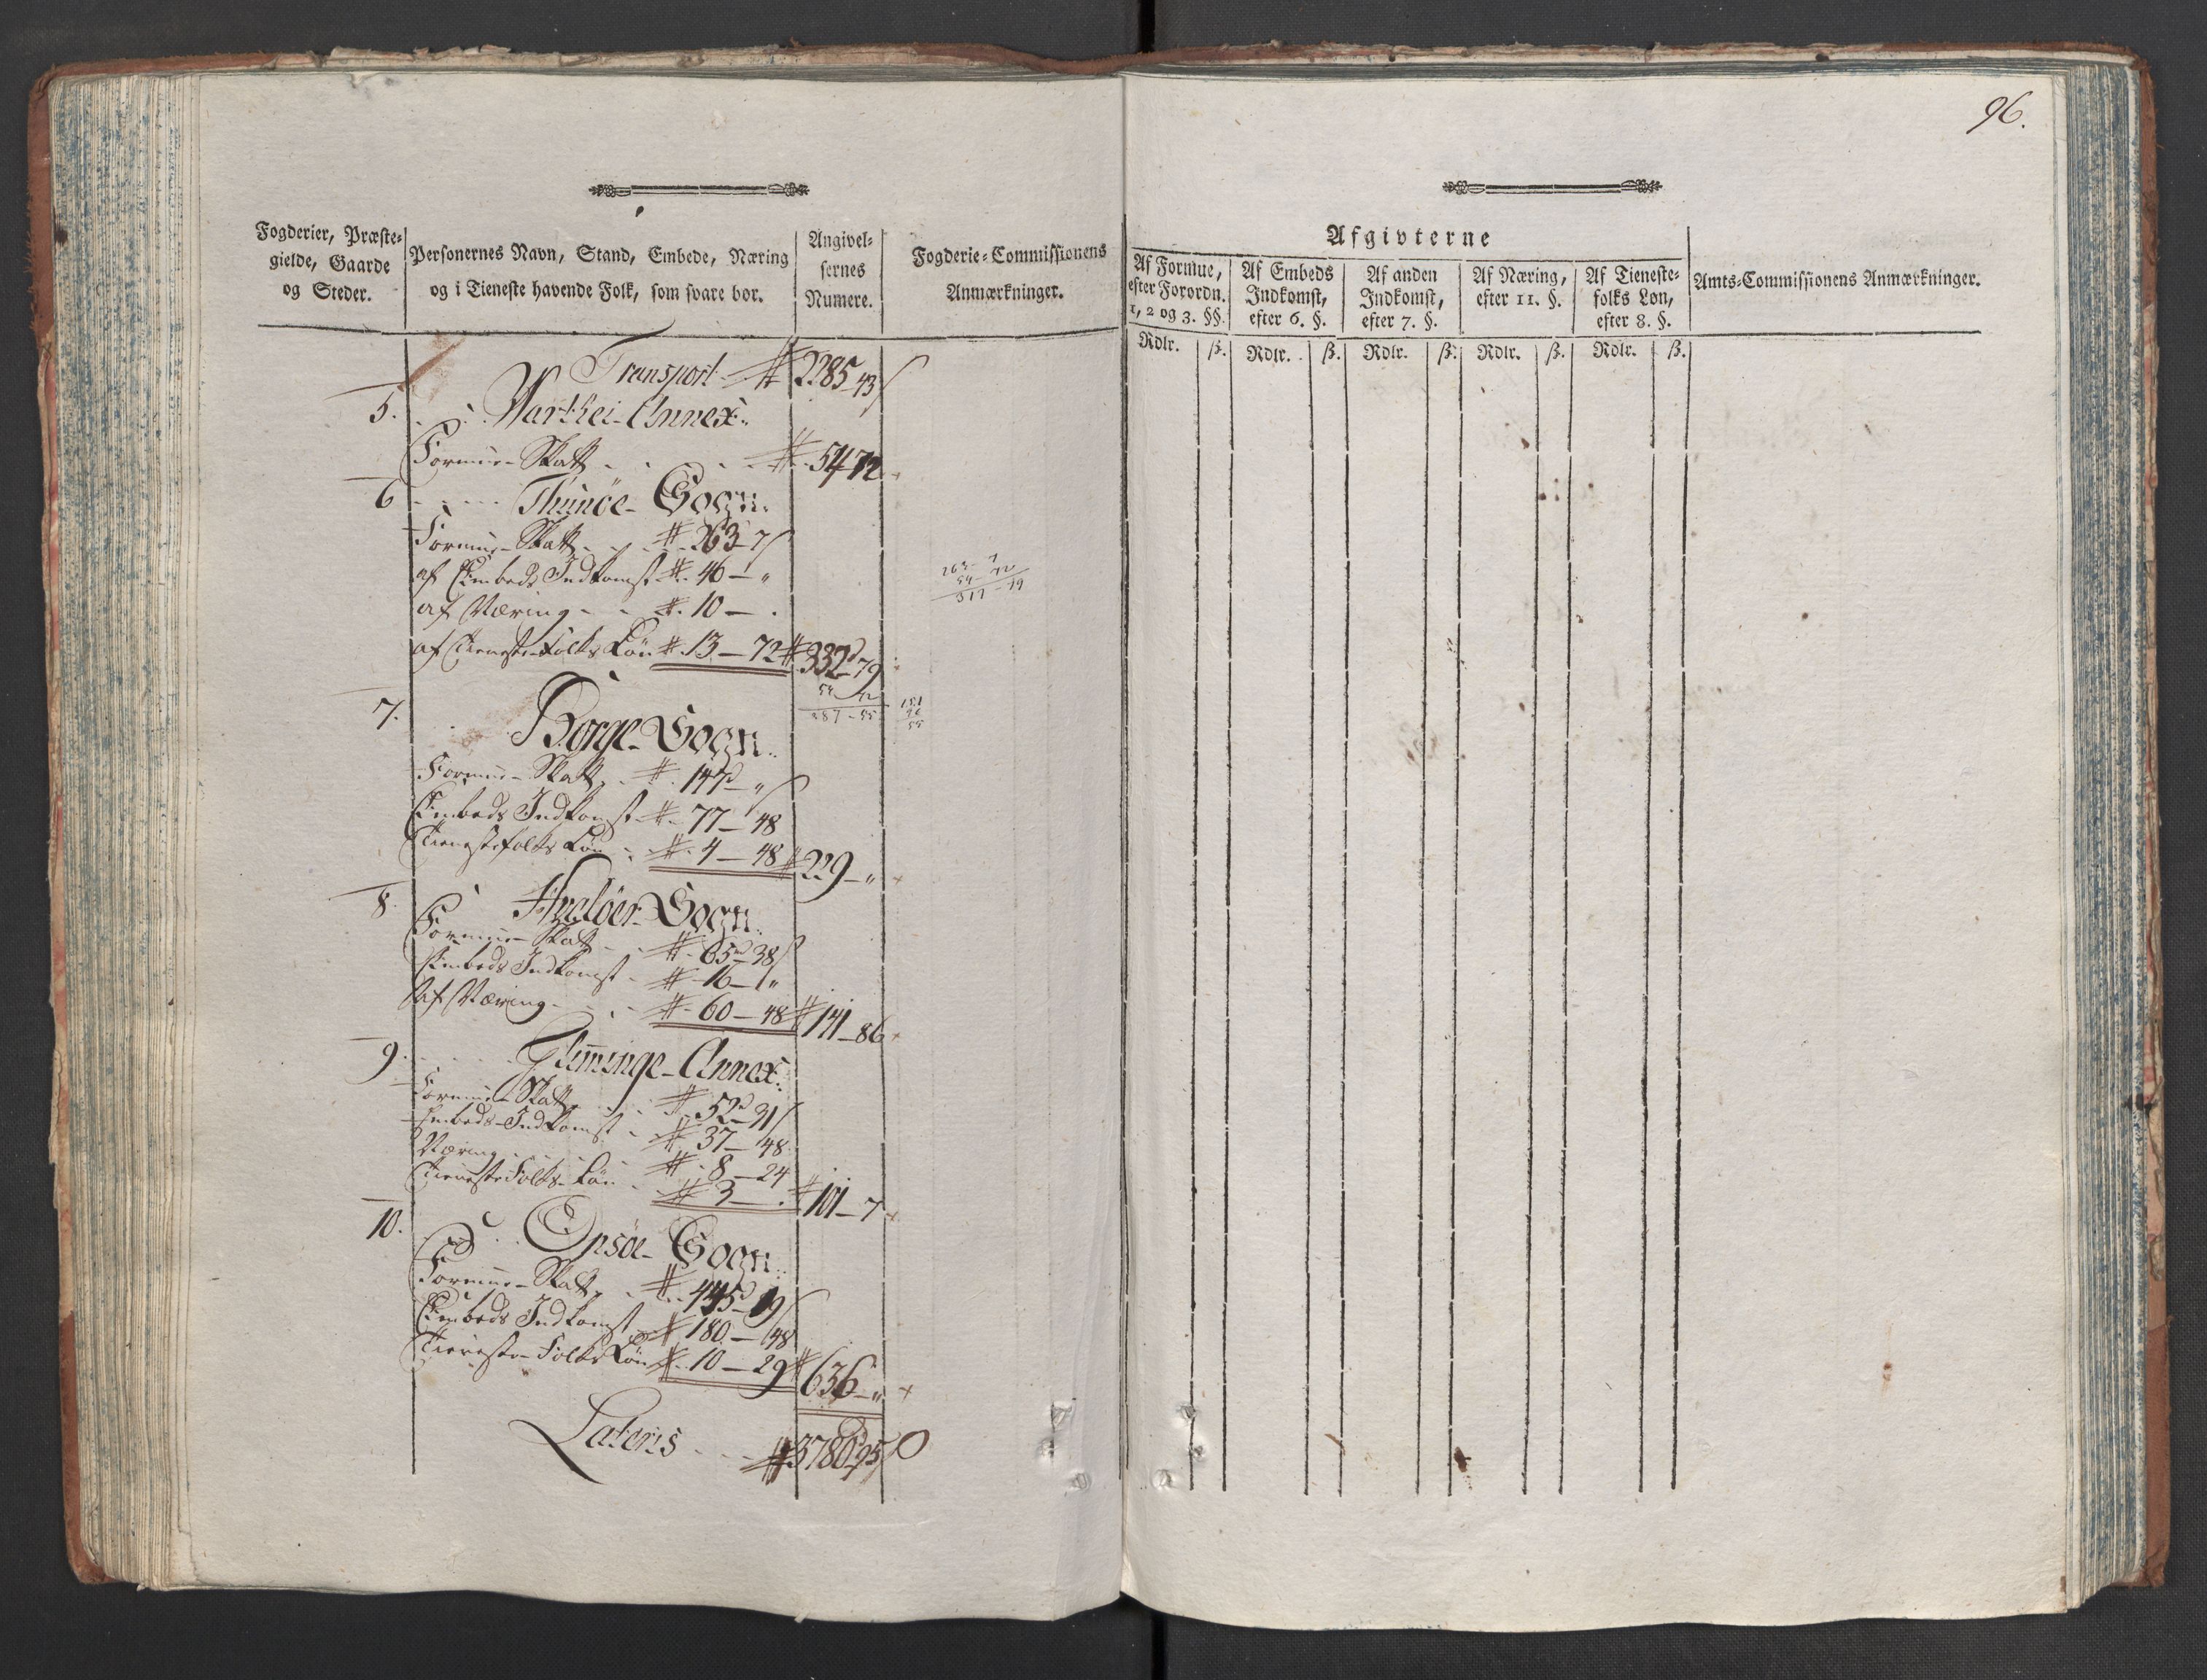 96.
Fogderier, Præste-
gielde, Gaarde
og Steder.
Personernes Navn, Stand, Embede, Næring
og i Tieneste havende Folk, som svare bør.
Angivel-
sernes
Numere.
Fogderie-Commissionens
Anmærkninger.
Afgivterne
Af Formue,
efter Forordn.
1, 2 og 3. §§.
Af Embeds
Indkomst,
efter 6. §.
Af anden
Indkomst,
efter 7. §.
Af Næring,
efter 11. §.
Af Tieneste-
folks Løn,
efter 8. §.
Amts-Commissionens Anmærkninger.
Rdlr. ß. Rdlr. ß. Rdlr. ß. Rdlr. ß. Rdlr. ß.
Transport 2285 43
5. Varthei-Annex:
Formue-Skatt 54 72
6 Thunöe-Sogn:
Formue-Skatt 263 7
af Embeds Indkomst 46 — "
af Næring 10 —
af Tieneste-Folks Løn 13 — 72 332 79
263 - 7
54 - 72
317 - 79
54 72
287 - 55
151
96
55
7. Borge-Sogn:
Formue-Skatt 147 — "
Embeds Indkomst 77 — 48
Tienestefolks Løn 4 — 48 229 — "
8. Hvalöer-Sogn:
Formue-Skatt 65 38
Embeds Indkomst 16 — "
Af Næring 60 — 48 141 — 86
9. Glimminge-Annex:
Formue-Skatt 52 31
Embeds-Indkomst 37 — 48
Næring 8 — 24
Tieneste Folks-Løn 3 — 101 — 7
10. Onsöe-Sogn:
Formue-Skatt 445 19
Embeds Indkomst 180 — 48
Tieneste-Folks Løn 10 — 29 636 — "
Lateris 3780 95